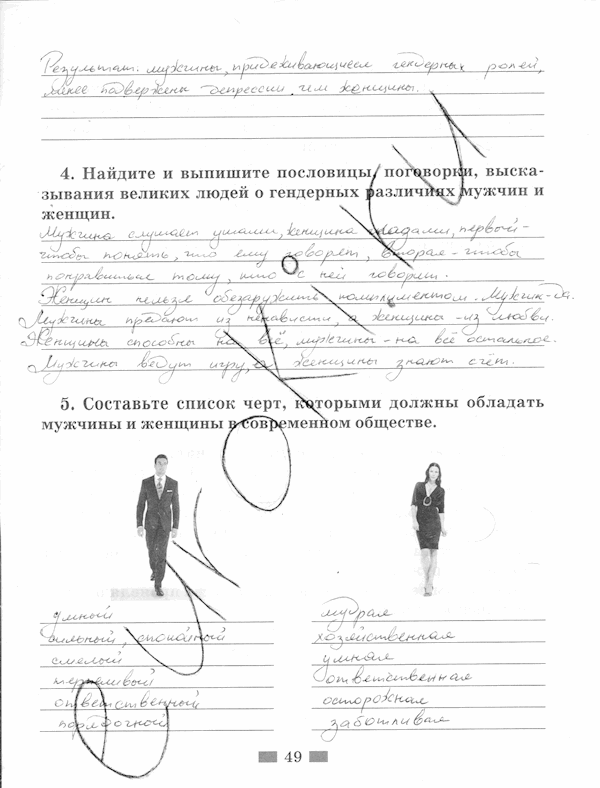 Результат: мужчины, придеживающиеся гендерных ролей,
более подвержены депрессии, чем женщины.
4. Найдите и выпишите пословицы, поговорки, выска-
зывания великих людей о гендерных различиях мужчин и
женщин.
Мужчина слушает ушами, женщина глазами, первый -
чтобы понять, что ему говорят, вторая - чтобы
понравиться тому, кто с ней говорит.
Женщин нельзя обезаружить комплиментом. Мужчин-да.
Мужчины предают из ненависти, а женщины - из любви.
Женщины способны на всё, мужчины - на всё остальное.
Мужчины ведут игру, а женщины знают счёт.
5. Составьте список черт, которыми должны обладать
мужчины и женщины в современном обществе.
умный
сильный, спокойный
смелый
терпеливый
ответственный
порядочный
мудрая
хозяйственная
умная
ответственная
осторожная
заботливая
49